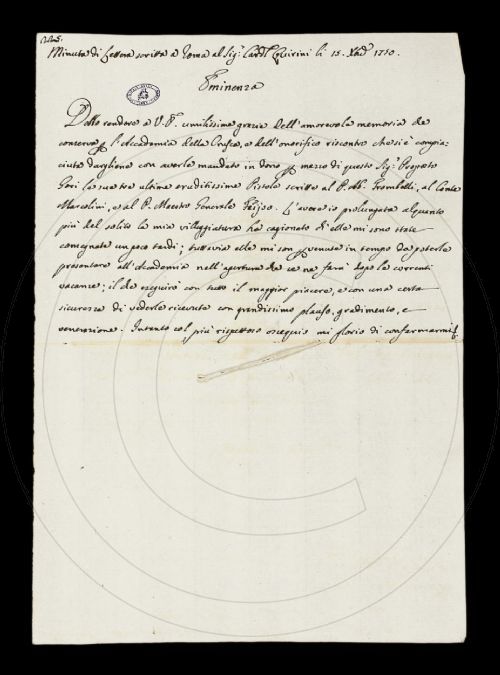 Minuta di Lettera scritta a Roma al Sig.r Card.l Quirini li 15. Xbr. 1750.
Eminenza
Debbo rendere a V. E. umilissime grazie dell'amorevole memoria che
conserva per l'Accademia della Crusca, e dell'onorifico riscontro che si è compia:
ciuta dargliene con averle mandato in dono per mezzo di questo Sig.r Proposto
Gori le sue tre ultime eruditissime Pistole scritte al P. Ab. Trombelli, al Conte
Mazzolini, e al P. Maestro Generale Feijoo. L'avere io prolungata alquanto
più del solito la mia villeggiatura ha cagionato ch'elle mi sono state
consegnate un poco tardi; tuttavia elle mi son pervenute in tempo da poterle
presentare all'Accademia nell'apertura che se ne farà dopo le correnti
vacanze; il che eseguirò con tutto il maggior piacere, e con una certa
sicurezza di vederle ricevute con grandissimo plauso, gradimento, e
venerazione. Intanto col più rispettoso ossequio mi glorio di confermarmi